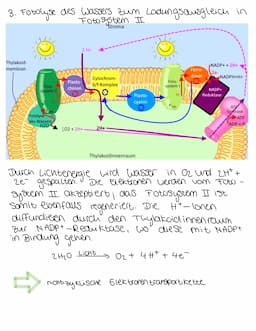 3. Fotolyse des Wassers zum Ladungsausgleich in
Fotosystem II
Stroma
Thylakoid-
membran
Plasto-
chinon
Cytochrom-
b/f-Komplex
Plasto-
cyanin
NADP+
Reduktase
Thylakoidinnenraum
Durch Lichtenergie wird Wasser in O2 und 2H+ +
2e- gespalten. Die Elektronen werden vom Foto-
system II akzeptiert, das Fotosystem II ist
somit ebenfalls regeneriert. Die H+-Ionen
diffundieren durch den Thylakoidinnenraum
zur NADP+-Reduktase, wo diese mit NADP+
in Bindung gehen.
2H2O Licht → O2 + 4H+ + 4e-
nichtzyklische Elektronentransportkette